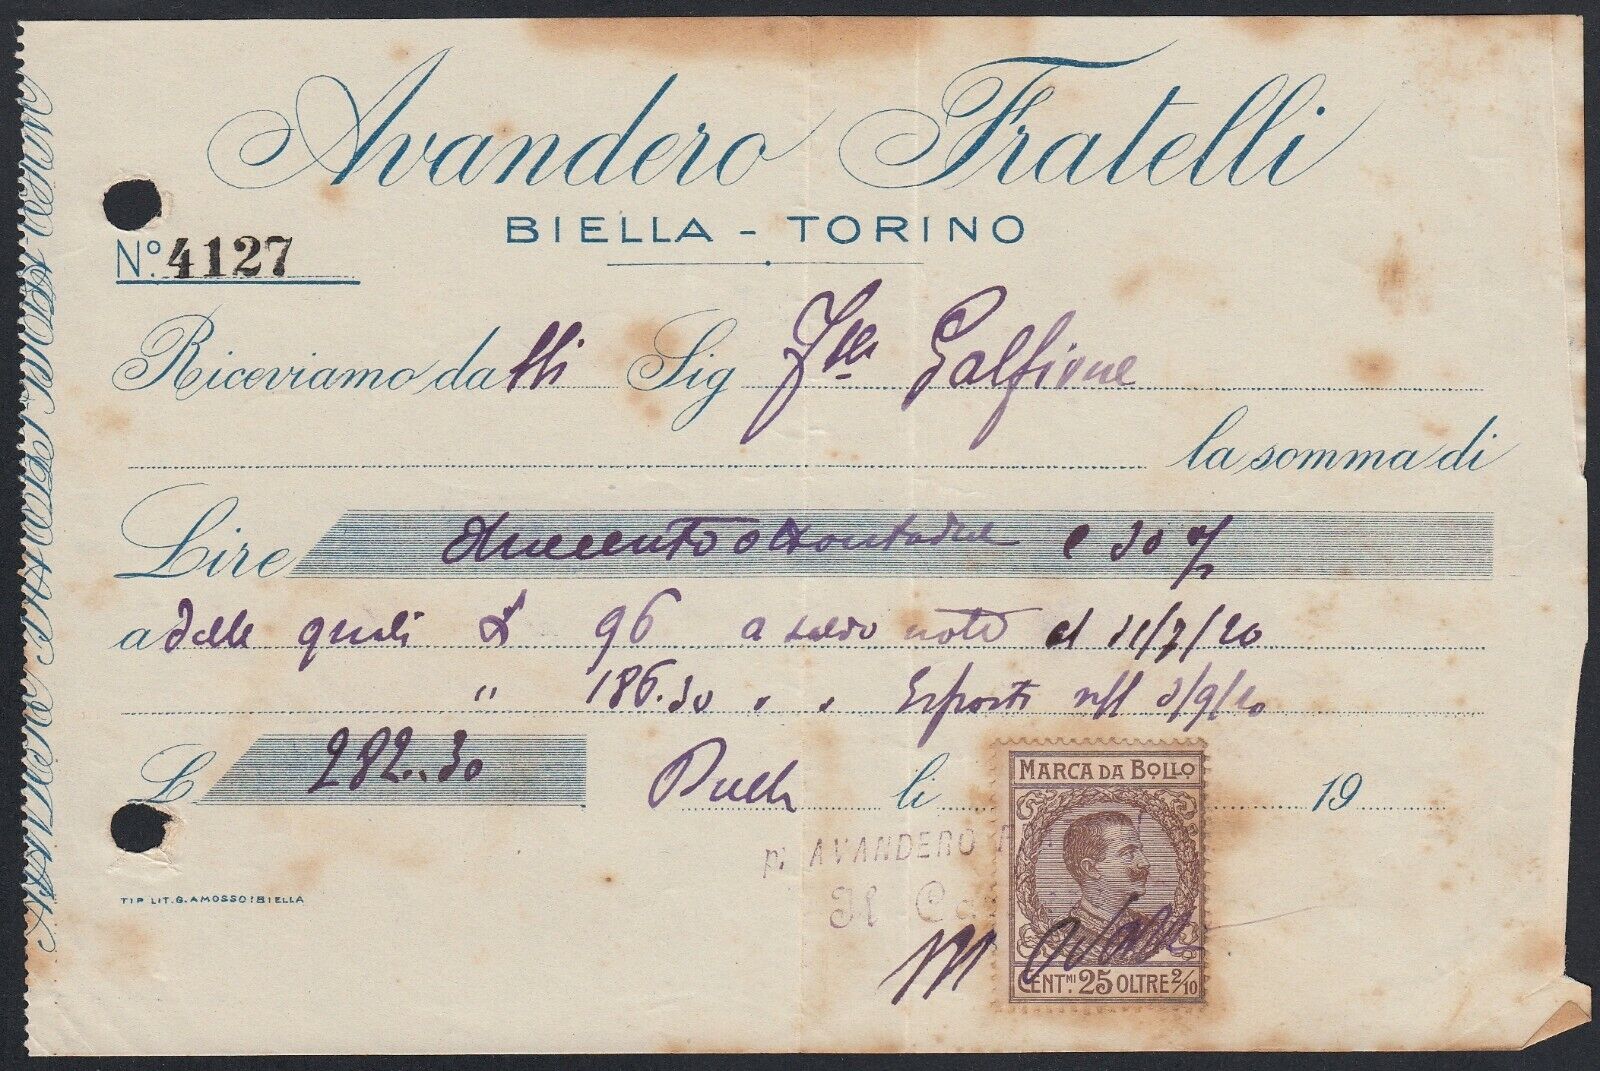 Avandero Fratelli
BIELLA - TORINO
Nº. 4127
Riceviamo da lli Sig Flli Galfione
la somma di
Lire duecentoottantadue e 30 %
a delle quali £ 96 a saldo note del 11/7/20
" 186.30 " " Esposti 3/9/20
L 282..30 li 19
MARCA DA BOLLO
p. AVANDERO F
Il Ca
CENT.MI 25 OLTRE 2/10
TIP. LIT. G. AMOSSO: BIELLA